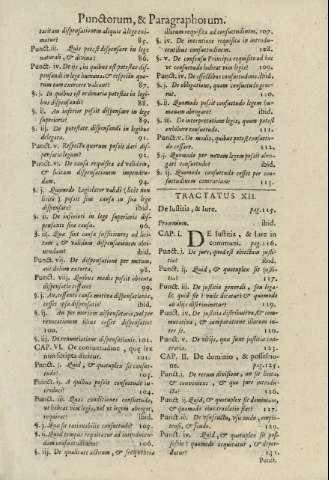 Punctorum, & Paragraphorum.
tacitam dispensationem aliquis à lege eximatur? 85.
Punct. iij. Quis possit dispensare in lege naturali, & divina? 86.
Punct. iv. De iis, in quibus est potestas dispensandi in lege humana, & respectu quorum eam exercere valeat? 87.
§. j. In quibus est ordinaria potestas in legibus dispensandi? 88.
§. ij. An inferior possit dispensare in lege superioris? 89.
§. iij. De potestate dispensandi in legibus delegata. 91.
Punct. v. Respectu quorum possit dari dispensatio legum? 92.
Punct. vj. De causa requisita ad validam, & licitam dispensationem impendendam. 94.
§. j. Quomodo Legislator validè (licet non licitè) possit sine causa in sua lege dispensare? ibid.
§. ij. De inferiori in lege superioris dispensante sine causa. 96.
§. iij. Quæ sint causæ sufficientes ad licitam, & validam dispensationem obtinendam? ibid.
Punct. vij. De dispensatione per metum, aut dolum extorta. 98.
Punct. viij. Quibus modis possit obtenta dispensatio cessare? 99.
§. j. An cessante causa motiva dispensationis, cesset ipsa dispensatio? ibid.
§. ij. An per mortem dispensatoris, vel per revocationem illius cesset dispensatio? 100.
§. iij. De renuntiatione dispensationis. 101.
CAP. VI. De consuetudine, quæ lex non scripta dicitur. 101.
Punct. j. Quid, & quotuplex sit consuetudo? 101.
Punct. ij. A quibus possit consuetudo introduci? 104.
Punct. iij. Quas conditiones consuetudo, ut habeat vim legis, vel ut legem abroget, requirat? ibid.
§. j. Quæ sit rationabilis consuetudo? 105.
§. ij. Quod tempus requiratur ad introducendam consuetudinem? 106.
§. iij. De qualitate actuum, & scripturis
illorum requisita ad consuetudinem. 107.
§. iv. De intentione requisita in introducentibus consuetudinem. 108.
§. v. De consensu Principis requisito ad hoc ut consuetudo habeat vim legis? 109.
Punct. iv. De effectibus consuetudinis. ibid.
§. j. De obligatione, quam consuetudo generat. 110.
§. ij. Quomodo possit consuetudo legem humanam abrogare? ibid.
§. iij. De interpretatione legis, quam potest exhibere consuetudo. 111.
Punct. v. De modis, quibus potest consuetudo cessare. 112.
§. j. Quando per novam legem possit abrogari consuetudo? ibid.
§. ij. Quomodo consuetudo cesset per consuetudinem contrariam? 113.
TRACTATUS XII.
De Iustitia, & Iure. pag. 115.
Proœmium. ibid.
CAP. I. DE Iustitia, & Iure in communi. pag. 116.
Punct. j. De jure, quod est obiectum justitiæ? ibid.
Punct. ij. Quid, & quotuplex sit justitia? 117.
Punct. iij. De justitia generali, seu legali: quid sit & unde dicatur? & quomodo ab aliis discriminetur? 119.
Punct. iv. De justitia distributiva, & commutativa, & comparatione illarum inter se. 110.
Punct. v. De vitiis, quæ sunt justitiæ contraria. 123.
CAP. II. De dominio, & possessione. pag. 125.
Punct. j. De rerum divisione, an sit licita, & conveniens, & quo jure introducta? 126.
Punct. ij. Quid, & quotuplex sit dominium, & quomodo eius translatio fiat? 127.
Punct. iij. De usufructu, usu nudo, emphyteusi, & feudo. 130.
Punct. iv. Quid, & quotuplex sit possessio? quomodo acquiratur, & deperdatur? 141.
Punct.